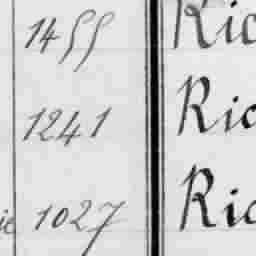 1455 Ric
1241 Ric
ie 1027 Ric